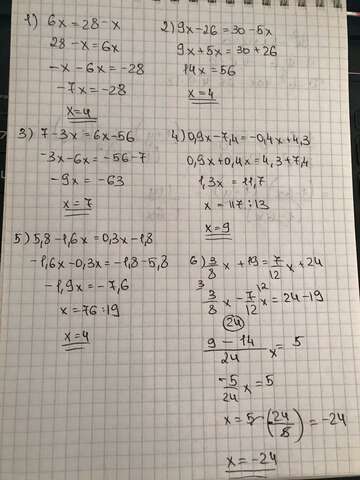 1) 6x = 28 - x
28 - x = 6x
-x - 6x = -28
-7x = -28
x = 4
2) 9x - 26 = 30 - 5x
9x + 5x = 30 + 26
14x = 56
x = 4
3) 7 - 3x = 6x - 56
-3x - 6x = -56 - 7
-9x = -63
x = 7
4) 0,9x - 7,4 = -0,4x + 4,3
0,9x + 0,4x = 4,3 + 7,4
1,3x = 11,7
x = 117 : 13
x = 9
5) 5,8 - 1,6x = 0,3x - 1,8
-1,6x - 0,3x = -1,8 - 5,8
-1,9x = -7,6
x = 76 : 19
x = 4
6) 3/8 x + 19 = 7/12 x + 24
3/8 x - 7/12 x = 24 - 19
24
9 - 14/24 x = 5
-5/24 x = 5
x = 5 · (-24/5) = -24
x = -24